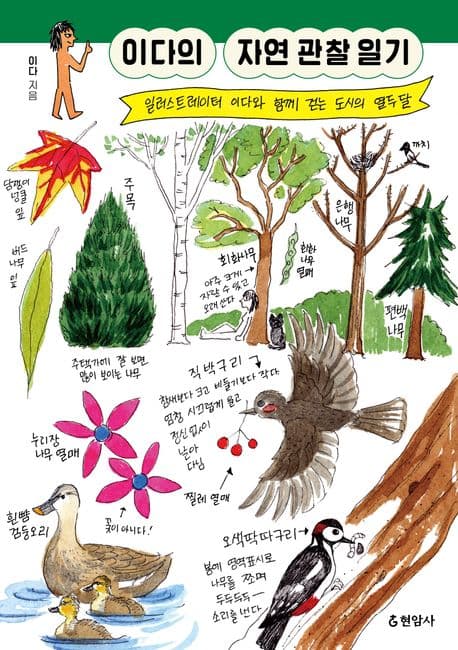 이다 지음
이다의 자연 관찰 일기
일러스트레이터 이다와 함께 걷는 도시의 열두 달
담쟁이
덩굴
잎
버드
나무
잎
주목
주택가에 잘 보면
많이 보이는 나무
회화나무
아주 크게
자랄 수 있고
오래 산다
회화
나무
열매
은행
나무
까치
편백
나무
직박구리
참새보다 크고 비둘기보다 작다
엄청 시끄럽게 울고
정신없이
날아
다님
찔레 열매
누리장
나무 열매
꽃이 아니다!
흰뺨
검둥오리
오색딱따구리
봄에 영역표시로
나무를 쪼며
두두두두ㅡ
소리를 낸다
현암사